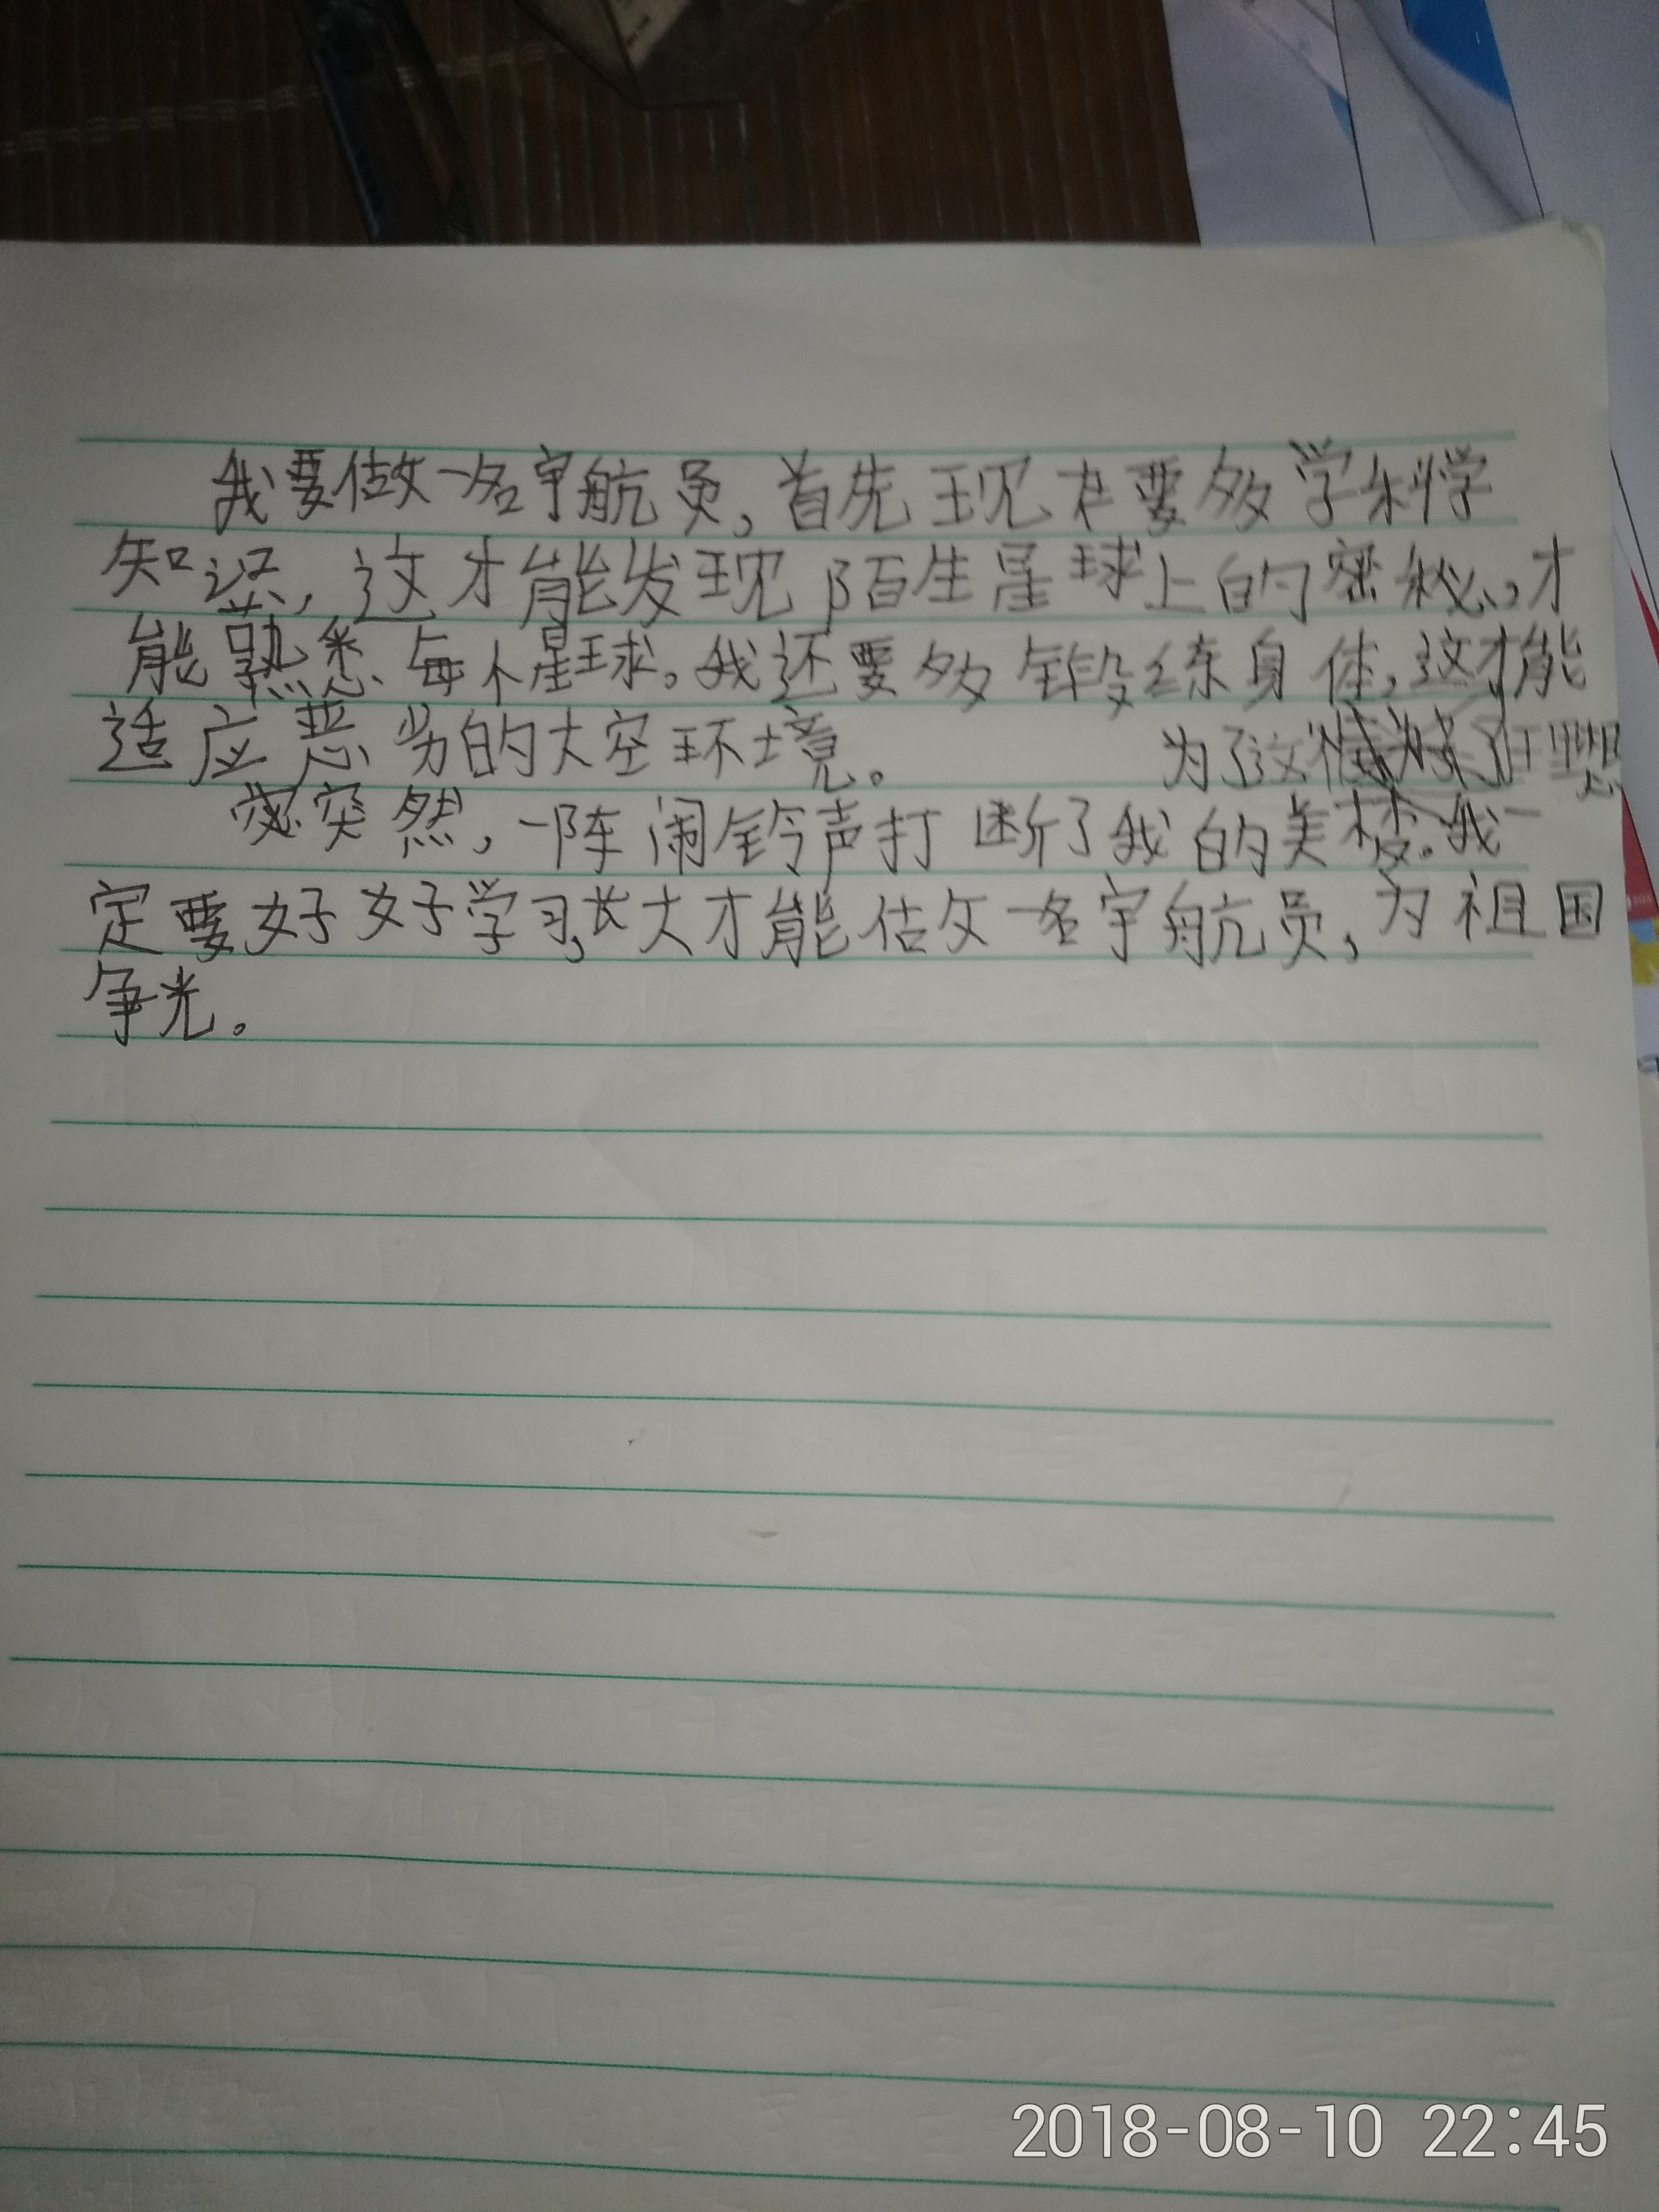 我要做一名宇航员，首先现在要多学科学
知识，这才能发现陌生星球上的密秘，才
能熟悉每个星球。我还要多锻练身体，这才能
适应恶劣的太空环境。 为了这
突然，一阵闹铃声打断了我的美梦。我一
定要好好学习，长大才能做一名宇航员，为祖国
争光。
2018-08-10 22:45